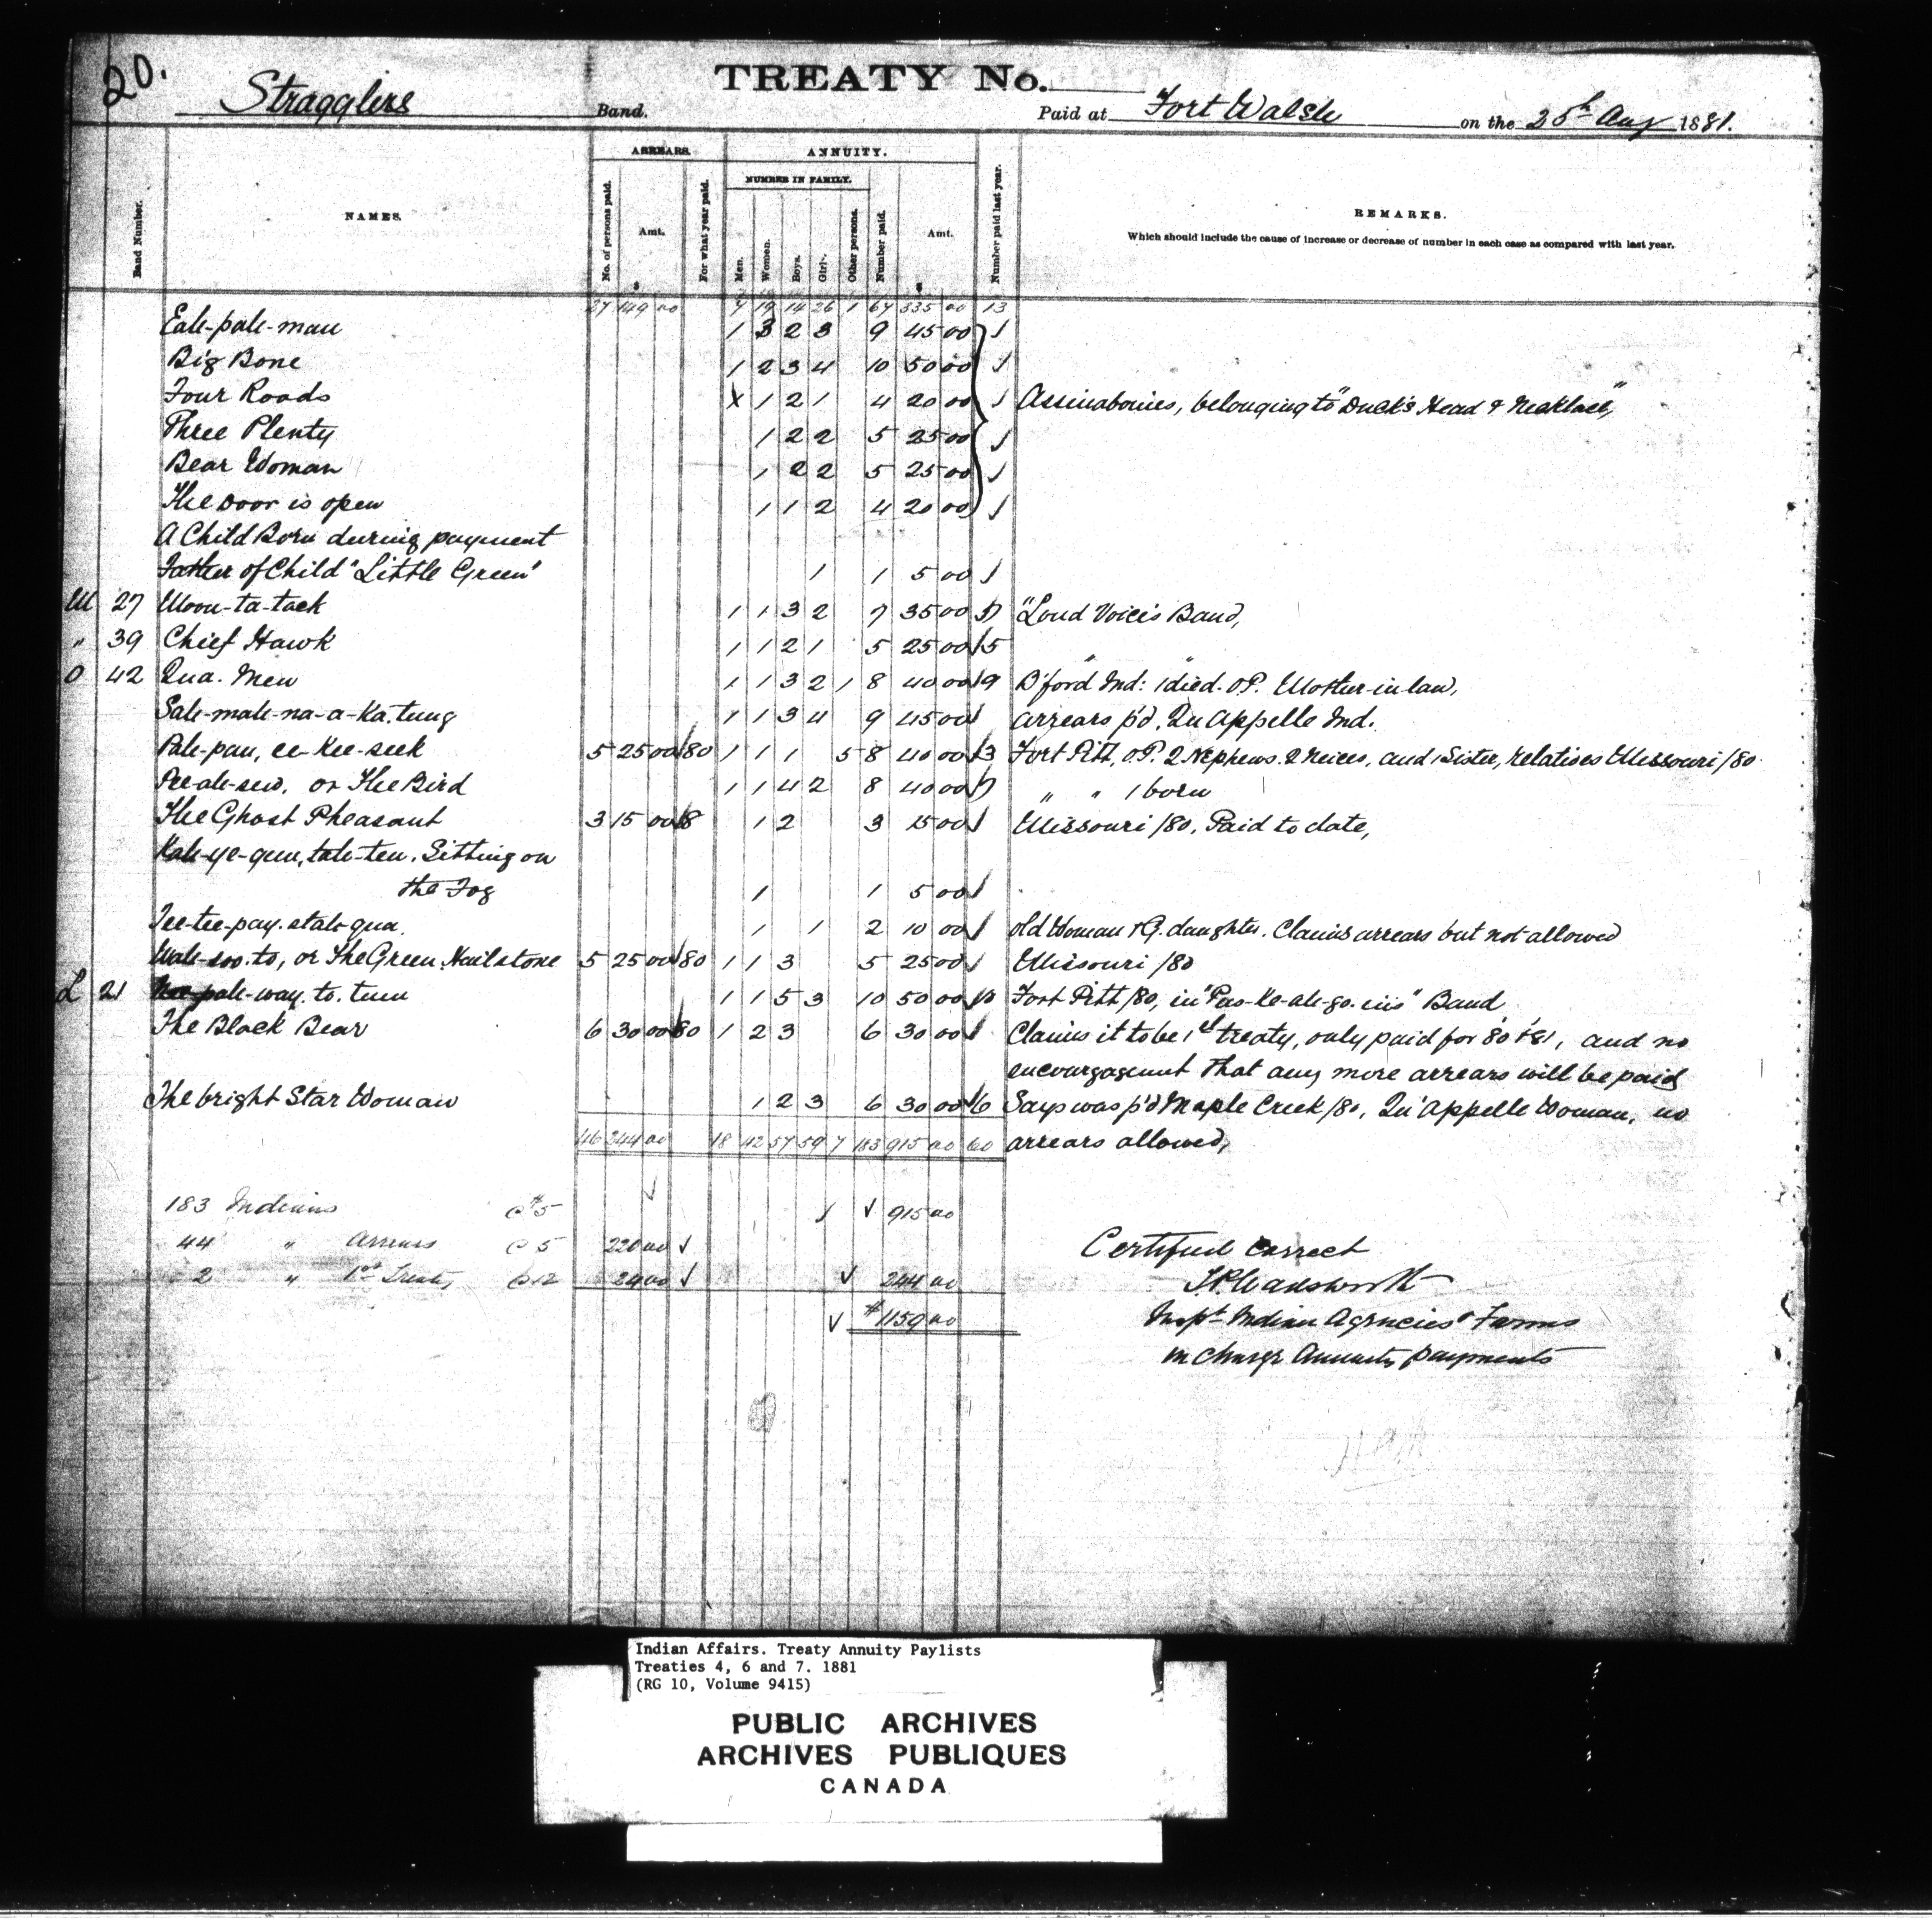 20.
TREATY No.
Stragglers Band. Paid at Fort Walsh on the 25th Aug 1881.
ARREARS. ANNUITY.
NUMBER IN FAMILY.
Band Number. NAMES. No. of persons paid. Amt. For what year paid. Men. Women. Boys. Girls. Other persons. Number paid. Amt. Number paid last year. REMARKS.
Which should include the cause of increase or decrease of number in each case as compared with last year.
$ $
27 149 00 7 19 14 26 1 67 335 00 13
Eah-pah-man 1 3 2 3 9 45 00 √
Big Bone 1 2 3 4 10 50 00 √
Four Roads X 1 2 1 4 20 00 √ Assinaboines, belonging to "Duck's Head & Necklace,"
Three Plenty 1 2 2 5 25 00 √
Bear Woman 1 2 2 5 25 00 √
The Door is open 1 1 2 4 20 00 √
A Child Born during payment
Father of Child "Little Green" 1 1 5 00 √
M 27 Moon-ta-tack 1 1 3 2 7 35 00 √7 "Loud Voice's Band,
" 39 Chief Hawk 1 1 2 1 5 25 00 √5 " "
O 42 Qua-Mew 1 1 3 2 1 8 40 00 √9 B'ford Ind: 1 died. O.P. Mother-in-law,
Sah-mah-na-a-Ka-tung 1 1 3 4 9 45 00 √ arrears p'd, Qu Appelle Ind.
Pah-pau, ee-Kee-seek 5 25 00 √80 1 1 1 5 8 40 00 √3 Fort Pitt, O.P. 2 Nephews. 2 neices, and 1 Sister, relatives Missouri /80
Pee-ah-sew, or The Bird 1 1 4 2 8 40 00 √7 " " 1 born
The Ghost Pheasant 3 15 00 √8 1 2 3 15 00 √ Missouri /80, Paid to date,
Kah-ye-quu, tah-ten. Sitting on
the Fog 1 1 5 00 √
Tee-tee-pay-stah-qua. 1 1 2 10 00 √ old Woman & G. daughter. Claims arrears but not allowed
Wah-soo-to, or The Green Hailstone 5 25 00 √80 1 1 3 5 25 00 √ Missouri /80
L 21 pah-way-to-tum 1 1 5 3 10 50 00 √10 Fort Pitt /80, in "Pas-Ke-ah-go-ins" Band
The Black Bear 6 30 00 √80 1 2 3 6 30 00 √ Claims it to be 1st treaty, only paid for 80 & 81, and no
encouragement that any more arrears will be paid
The bright Star Woman 1 2 3 6 30 00 √6 Says was p'd Maple Creek /80, Qu'Appelle Woman, no
46 244 00 18 42 57 59 7 183 915 00 60 arrears allowed,
183 Indians @ $5 √ √ √ 915 00
44 " Arrears @ 5 220 00 √ Certified Correct
2 " 1st Treaty @ 12 24 00 √ √ 244 00 T.P. Wadsworth
√ $1159 00 Insp't Indian Agencies & Farms
in charge Annuity payments
Indian Affairs. Treaty Annuity Paylists
Treaties 4, 6 and 7. 1881
(RG 10, Volume 9415)
PUBLIC ARCHIVES
ARCHIVES PUBLIQUES
CANADA